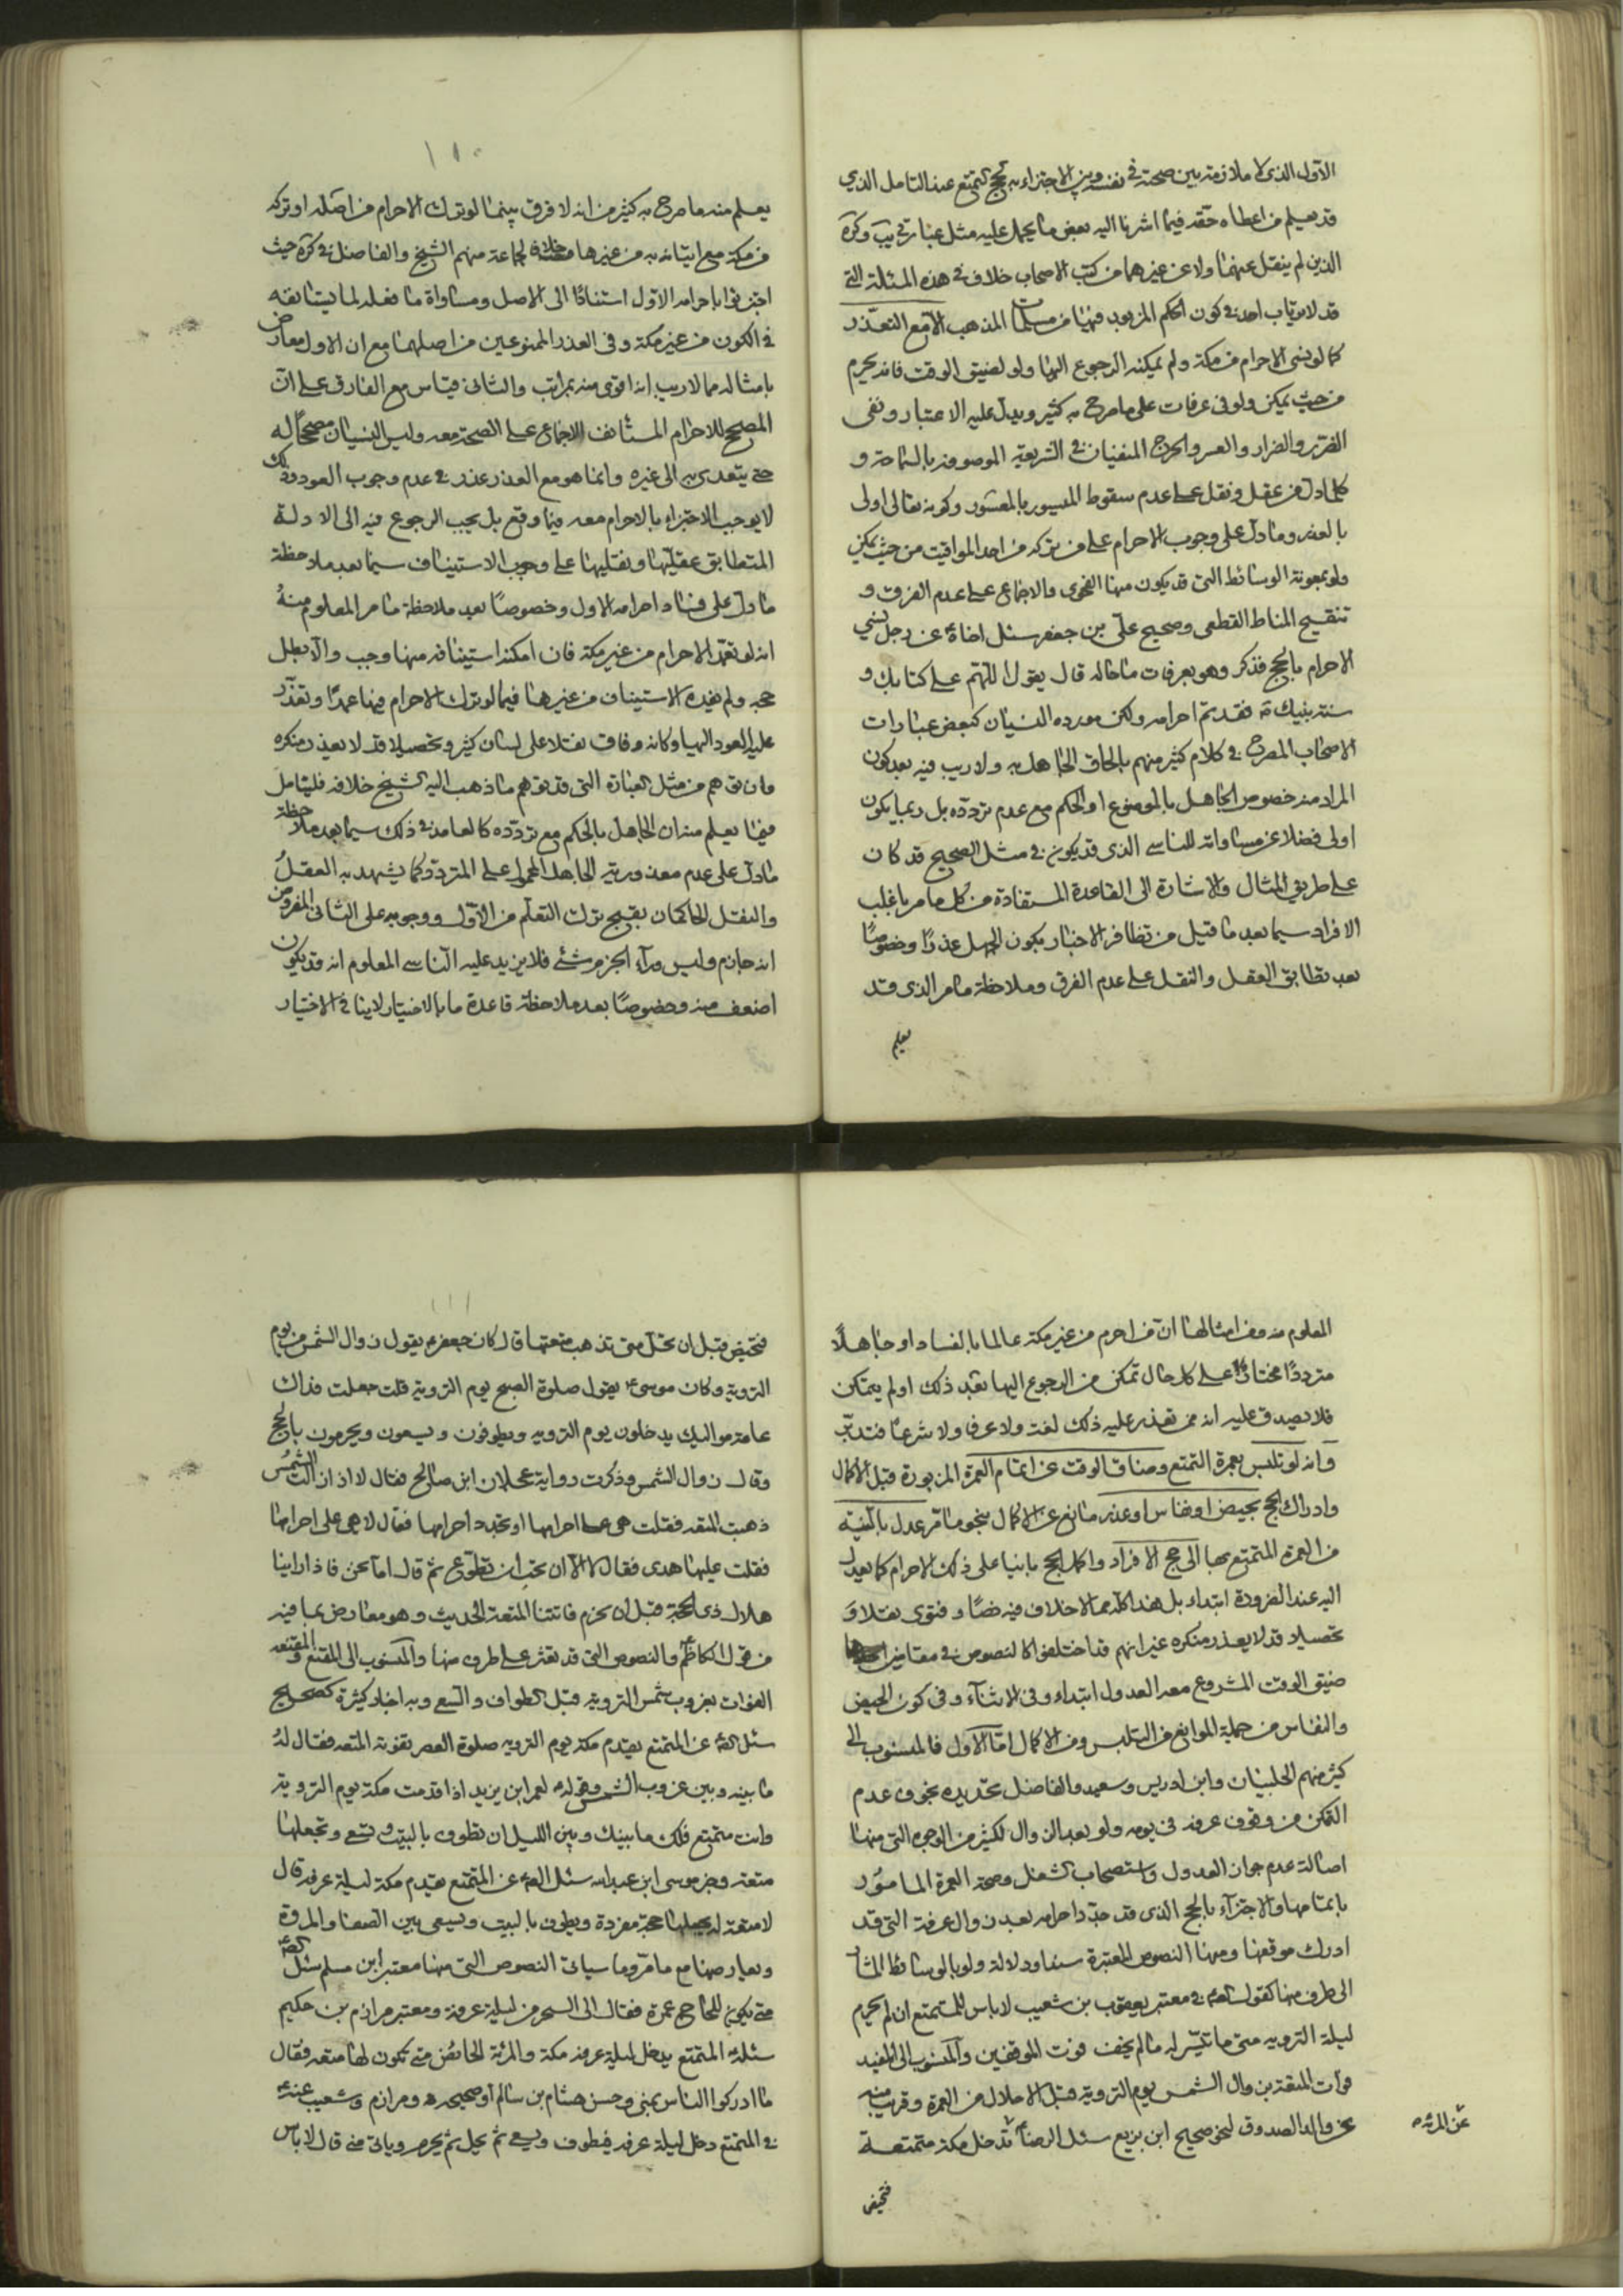 الاول الذی لا ملازمة بین صحته فی نفسه وبین الاجتزاء به لحج التمتع عند التامل الذی
قد یعلم من اعطاه حقه فیما اشرنا الیه بعض ما یحمل علیه مثل عبارتی یب وکره
الذین لم ینقل عنهما ولا عن غیرهما من کتب الاصحاب خلاف فی هذه المسئلة التی
قد لا یرتاب احد فی کون الحکم المزبور فیها من مسلمات المذهب الا مع التعذر
کما لو نسی الاحرام من مکة ولم یمکنه الرجوع الیها ولو لضیق الوقت فانه یحرم
من حیث یمکن ولو فی عرفات علی ما صرح به کثیر ویدل علیه الاعتبار ونفی
الضرر والضرار والعسر والحرج المنفیان فی الشریعة الموصوفة بالسماحة و
کلما دل من عقل ونقل علی عدم سقوط المیسور بالمعسور وکونه تعالی اولی
بالعذر وما دل علی وجوب الاحرام علی من ترکه من احد المواقیت من حیث یمکن
ولو بمعونة الوسائط التی قد یکون منها الفحوی والاجماع علی عدم الفرق و
تنقیح المناط القطعی وصحیح علی بن جعفر سئل اخاه عن رجل نسی
الاحرام بالحج فذکر وهو بعرفات ما حاله قال یقول اللهم علی کتابک و
سنة نبیک فقد تم احرامه ولکن مورده النسیان کبعض عبارات
الاصحاب المصرح فی کلام کثیر منهم بالحاق الجاهل به ولا ریب فیه بعد کون
المراد منه خصوص الجاهل بالموضوع او الحکم مع عدم تردده بل ربما یکون
اولی فضلا عن مساواته للناسی الذی قد یکون فی مثل الصحیح قد کان
علی طریق المثال والاشارة الی القاعدة المستفادة من کل ما مر باغلب
الافراد سیما بعد ما قیل من تظافر الاخبار بکون الجهل عذرا وخصوصا
بعد تطابق العقل والنقل علی عدم الفرق وملاحظة ما مر الذی قد
یعلم
۱۱۰
یعلم منه ما صرح به کثیر من انه لا فرق بینما لو ترک الاحرام من اصله او ترکه
من مکة مع اتیانه به من غیرها خلافا لجماعة منهم الشیخ والفاضل فی کره حیث
اجتزئوا باحرامه الاول استنادا الی الاصل ومساواة ما فعله لما یستانفه
فی الکون من غیر مکة وفی العذر الممنوعین من اصلهما مع ان الاول معارض
بامثاله مما لا ریب انه اقوی منه بمراتب والثانی قیاس مع الفارق علی ان
المصحح للاحرام المستانف الاجماع علی الصحة معه ولیس النسیان مصححا له
حتی یتعدی به الی غیره وانما هو مع العذر عذر فی عدم وجوب العود وذلک
لا یوجب الاجتزاء بالاحرام معه فیما وقع بل یجب الرجوع فیه الی الادلة
المتطابق عقلیتها ونقلیتها علی وجوب الاستیناف سیما بعد ملاحظة
ما دل علی فساد احرامه الاول وخصوصا بعد ملاحظة ما مر المعلوم منه
انه لو تعمد الاحرام من غیر مکة فان امکنه استینافه منها وجب والا بطل
حجه ولم یفده الاستیناف من غیرها فیما لو ترک الاحرام فیها عمدا وتعذر
علیه العود الیها وکانه وفاق نقلا علی لسان کثیر وتحصیلا قد لا یعذر منکره
وان توهم من مثل العبارة التی قد توهم ما ذهب الیه الشیخ خلافه فلیتامل
فیها یعلم منه ان الجاهل بالحکم مع تردده کالعامد فی ذلک سیما بعد ملاحظة
ما دل علی عدم معذوریة الجاهل المحمول علی المتردد کما یشهد به العقل
والنقل الحاکمان بقبح ترک التعلم من الاول ووجوبه علی الثانی المفروض
انه جازم ولیس وراء الجزم شئ فلا یزید علیه الناسی المعلوم انه قد یکون
اضعف منه وخصوصا بعد ملاحظة قاعدة ما بالاختیار لا ینافی الاختیار
المعلوم منه ومن امثالها ان من احرم من غیر مکة عالما بالفساد او جاهلا
مترددا مختارا علی کل حال تمکن من الرجوع الیها بعد ذلک او لم یتمکن
فلا یصدق علیه انه ممن تعذر علیه ذلک لغة ولا عرفا ولا شرعا فتدبر
وانه لو تلبس بعمرة التمتع وضاق الوقت عن اتمام العمرة المزبورة قبل الاکمال
وادراک الحج بحیض او نفاس او عذر مانع عن الاکمال بنحو ما مر عدل بالنیة
من العمرة المتمتع بها الی حج الافراد واکمل الحج بانیا علی ذلک الاحرام کما یعدل
الیه عند الضرورة ابتداء بل هذا کله مما لا خلاف فیه نصا وفتوی نقلا و
تحصیلا قد لا یعذر منکره غیر انهم قد اختلفوا کالنصوص فی مقامین احدهما
ضیق الوقت المشروع معه العدول ابتداء وفی الاثناء وفی کون الحیض
والنفاس من جملة الموانع من التلبس ومن الاکمال اما الاول فالمنسوب الی
کثیر منهم الحلبیان وابن ادریس وسعید والفاضل تحدیده بخوف عدم
التمکن من وقوف عرفة فی یومه ولو بعد الزوال لکثیر من الوجوه التی منها
اصالة عدم جواز العدول واستصحاب الشغل وصحة العمرة المامور
باتمامها والاجتزاء بالحج الذی قد جدد احرامه بعد زوال عرفة التی قد
ادرک موقفها ومنها النصوص المعتبرة سندا ودلالة ولو بالوسائط المشار
الی طرف منها کقول فی معتبر یعقوب بن شعیب لا باس للمتمتع ان لم یحرم
لیلة الترویه متی ما تیسر له ما لم یخف فوت الموقفین والمنسوب الی المفید
فوات المتعة بزوال الشمس یوم الترویة قبل الاحلال من العمرة وقریب منه
عن والد الصدوق لنحو صحیح ابن بزیع سئل الرضا تدخل مکة متمتعة
عن المرئة
فتحیض
۱۱۱
فتحیض قبل ان تحل متی تذهب متعتها قال کان جعفر یقول زوال الشمس من یوم
الترویة وکان موسی یقول صلوة الصبح یوم الترویة قلت جعلت فداک
عامة موالیک یدخلون یوم الترویه ویطوفون ویسعون ویحرمون بالحج
وقال زوال الشمس وذکرت روایة عجلان ابن صالح فقال لا اذا زالت الشمس
ذهبت المتعه فقلت هی علی احرامها او تجدد احرامها فقال لا هی علی احرامها
فقلت علیها هدی فقال لا الا ان تحب ان تطوع ثم قال اما نحن فاذا راینا
هلال ذی الحجة قبل ان نحرم فاتتنا المتعة الحدیث وهو معارض بما فیه
من قول الکاظم والنصوص التی قد تعثر علی طرف منها والمنسوب الی المقنع والمقنعه
الفوات بغروب شمس الترویه قبل الطواف والسعی وبه اخبار کثیرة کصحیح
سئل عن المتمتع یقدم مکة یوم الترویه صلوة العصر تفوته المتعه فقال له
ما بینه وبین غروب الشمس وقوله لعمر ابن یزید اذا قدمت مکة یوم الترویة
وانت متمتع فلک ما بینک وبین اللیل ان تطوف بالبیت وتسعی وتجعلها
متعة وخبر موسی ابن عبدالله سئل عن المتمتع یقدم مکة لیلة عرفه قال
لا متعة له یجعلها حجة مفردة ویطوف بالبیت ویسعی بین الصفا والمروة
ویعارضها مع ما مر وما سیاتی النصوص التی منها معتبر ابن مسلم سئل
متی یکون للحاج عمرة فقال الی السحر من لیلة عرفة ومعتبر مرازم بن حکیم
سئله المتمتع یدخل لیلة عرفه مکة والمرئة الحائض متی تکون لها متعه فقال
ما ادرکوا الناس بمنی وحسن هشام بن سالم او صحیحه ومرازم وشعیب عنه
فی المتمتع دخل لیلة عرفه فیطوف ویسعی ثم یحل ثم یحرم ویاتی منی قال لا باس